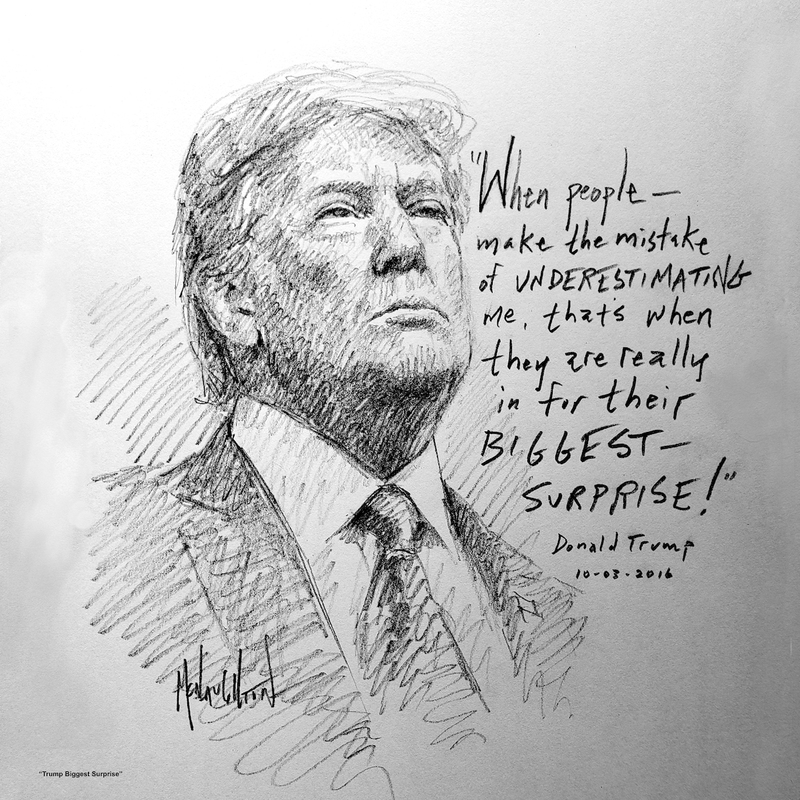 "When people—
make the mistake
of UNDERESTIMATING
me, that's when
they are really
in for their
BIGGEST—
SURPRISE!"
Donald Trump
10-03-2016
"Trump Biggest Surprise"